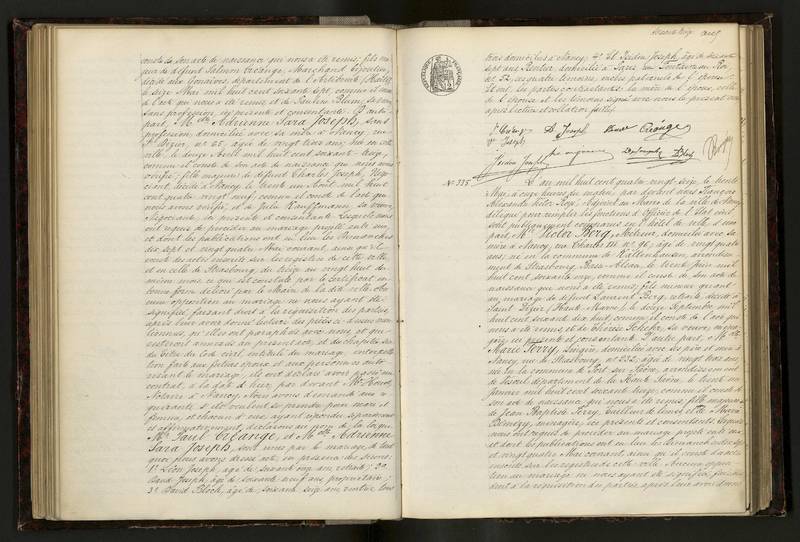 constate son acte de naissance qui nous a été remis; fils ma-
jeur de défunt Salomon Créange, Marchand bijoutier,
décédé aux Gonaïves, département de l'Artibonite (Haïti)
le seize Mai mil huit cent soixante sept, comme il conste
de l'acte qui nous a été remis et de Pauline Blum, sa veuve,
sans profession, ici présente et consentante. D'autre
part, Melle Adrienne Sara Joseph, sans
profession, domiciliée avec sa mère à Nancy, rue
St Dizier, no 25, âgée de vingt trois ans, née en cette
ville, le douze Avril mil huit cent soixante treize,
comme il conste de son acte de naissance que nous avons
vérifié; fille majeure de défunt Charles Joseph, Négo-
ciant, décédé à Nancy le trente un Août mil huit
cent quatre vingt neuf, comme il conste de l'acte que
nous avons vérifié; et de Julie Kauffmann, sa veuve,
Négociante, ici présente et consentante. Lesquels nous
ont requis de procéder au mariage projeté entre eux,
et dont les publications ont eu lieu les Dimanches
dix sept et vingt quatre Mai courant, ainsi qu'il
conste des actes inscrits sur les registres de cette ville
et en celle de Strasbourg, du seize au vingt huit du
même mois, ce qui est constaté par le certificat en
bonne forme délivré par le Maire de la dite ville. Au-
cune opposition au mariage ne nous ayant été
signifiée, faisant droit à la réquisition des parties,
après leur avoir donné lecture des pièces ci-dessus men-
tionnées, qu'elles ont paraphées avec nous, et qui
resteront annexées au présent acte; et du chapitre six
du titre du Code civil, intitulé du mariage, interpella-
tion faite aux futurs époux et aux personnes auto-
risant le mariage; ils ont déclaré avoir passé un
contrat, à la date d'hier, par devant Me
Notaire à Nancy. Nous avons demandé aux re-
quérants s'ils veulent se prendre pour mari et
femme, et chacun d'eux, ayant répondu séparément
et affirmativement, déclarons au nom de la loi que
Mr. Paul Créange, et Melle Adrienne
Sara Joseph, sont unis par le mariage, de tout
quoi nous avons dressé acte, en présence des sieurs:
1o Léon Joseph, âgé de soixante cinq ans, retraité; 2o
David Joseph, âgé de soixante neuf ans, propriétaire;
3o David Bloch, âgé de soixante seize ans, rentier, tous
trois domiciliés à Nancy; 4o et Isidore Joseph, âgé de soixante
sept ans, Rentier, domicilié à Paris, rue Fontaine au Roi,
no 52, ces quatre témoins, oncles paternels de l'épouse.
Et ont, les parties contractantes, la mère de l'époux, celle
de l'épouse et les témoins signé avec nous le présent acte
après lecture et collation faites.
P. Créange A. Joseph Créange
Vve Joseph
Isidore Joseph
No 335
L'an mil huit cent quatre vingt seize, le trente
Mai, à onze heures du matin, par devant nous François
Alexandre Victor Roze, Adjoint au Maire de la ville de Nancy,
délégué pour remplir les fonctions d'Officier de l'Etat civil,
sont publiquement comparus en l'hôtel de ville, d'une
part, Mr. Victor Berg, domicilié avec sa
mère à Nancy, rue Charles III no 96, âgé de vingt quatre
ans, né en la commune de Kaltenhausen, arrondisse-
ment de Strasbourg, Basse-Alsace, le trente Juin mil
huit cent soixante onze, comme il conste de son acte de
naissance qui nous a été remis; fils mineur quant
au mariage de défunt Laurent Berg, retraité, décédé à
Saint Dizier, Haute-Marne, le douze Septembre mil
huit cent soixante dix huit, comme il conste de l'acte qui
nous a été remis et de Thérèse Scheke, sa veuve, ména-
gère, ici présente et consentante. D'autre part, Melle
Marie Ferry, Lingère, domiciliée avec ses père et mère à
Nancy, rue de Strasbourg, no 232, âgée de vingt trois ans,
née en la commune de Port sur Saône, arrondissement
de Vesoul, département de la Haute Saône, le trente un
Janvier mil huit cent soixante treize, comme il conste de
son acte de naissance qui nous a été remis; fille majeure
de Jean Baptiste Ferry, Tailleur de limes, et de Marie
ménagère, ici présents et consentants. Lesquels
nous ont requis de procéder au mariage projeté entre eux,
et dont les publications ont eu lieu les Dimanches dix sept
et vingt quatre Mai courant, ainsi qu'il conste des actes
inscrits sur les registres de cette ville. Aucune opposi-
tion au mariage ne nous ayant été signifiée, faisant
droit à la réquisition des parties, après leur avoir donné